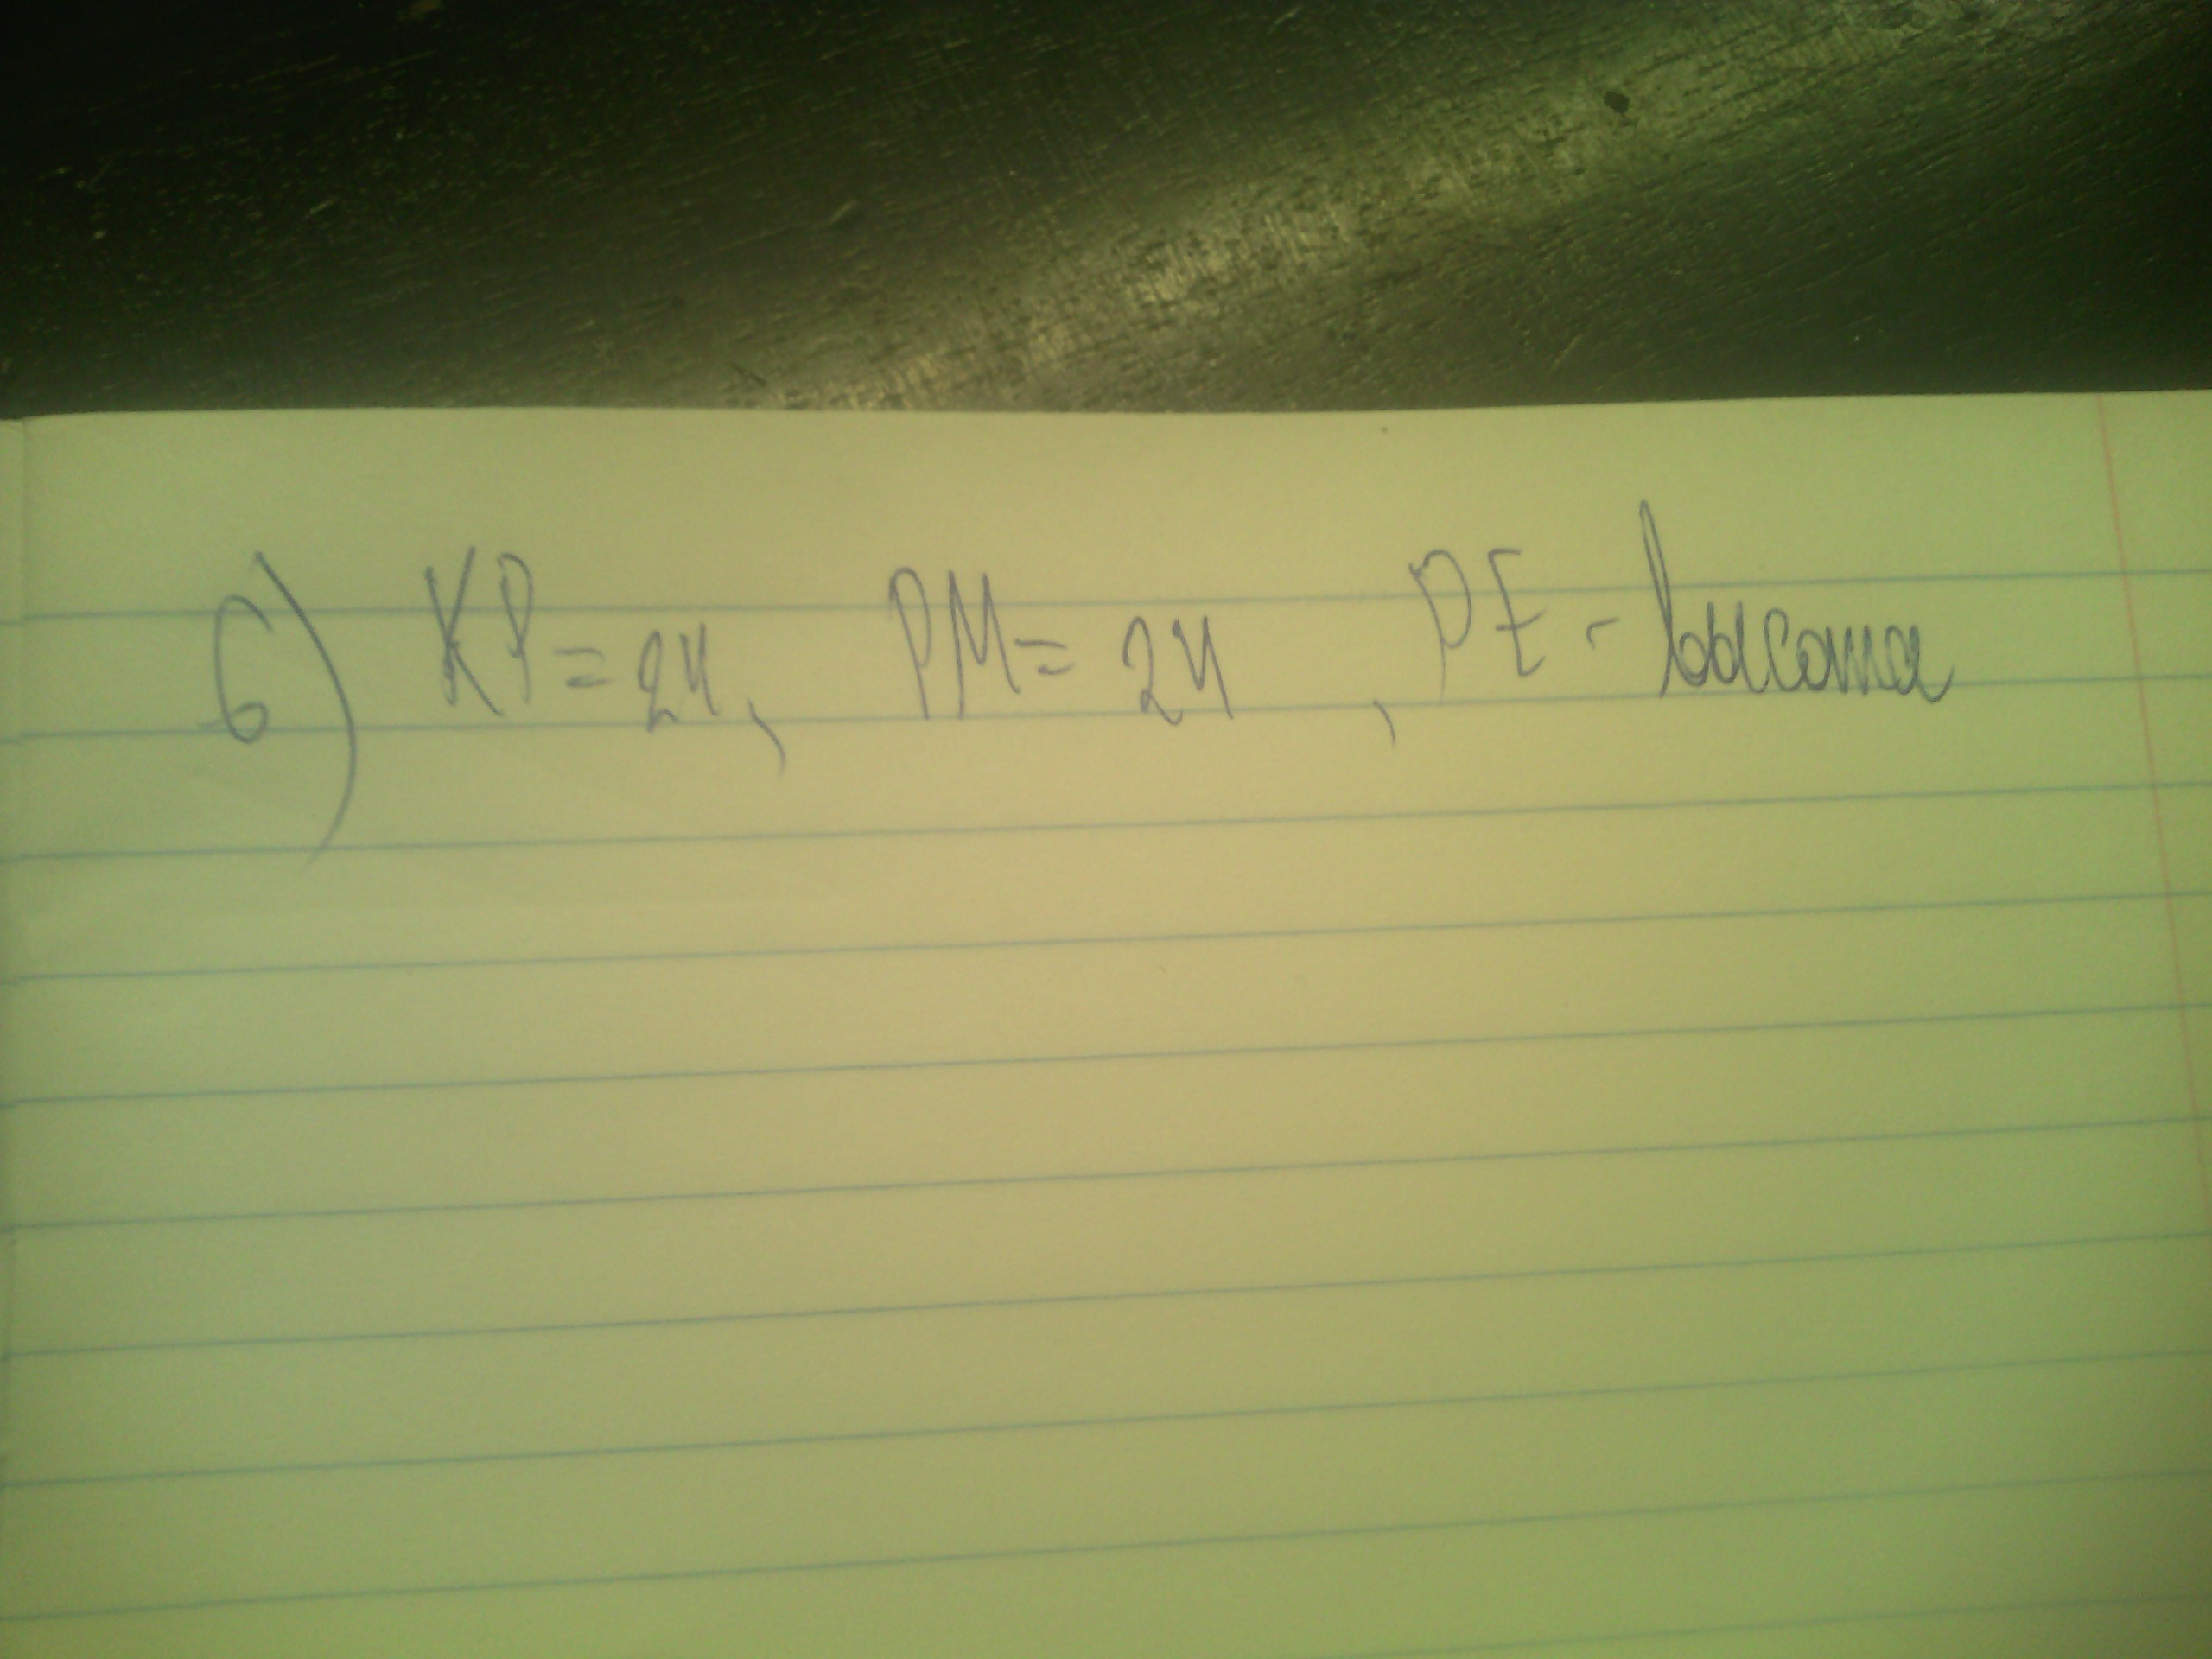 6) KP = 24, PM = 24, PE - высота